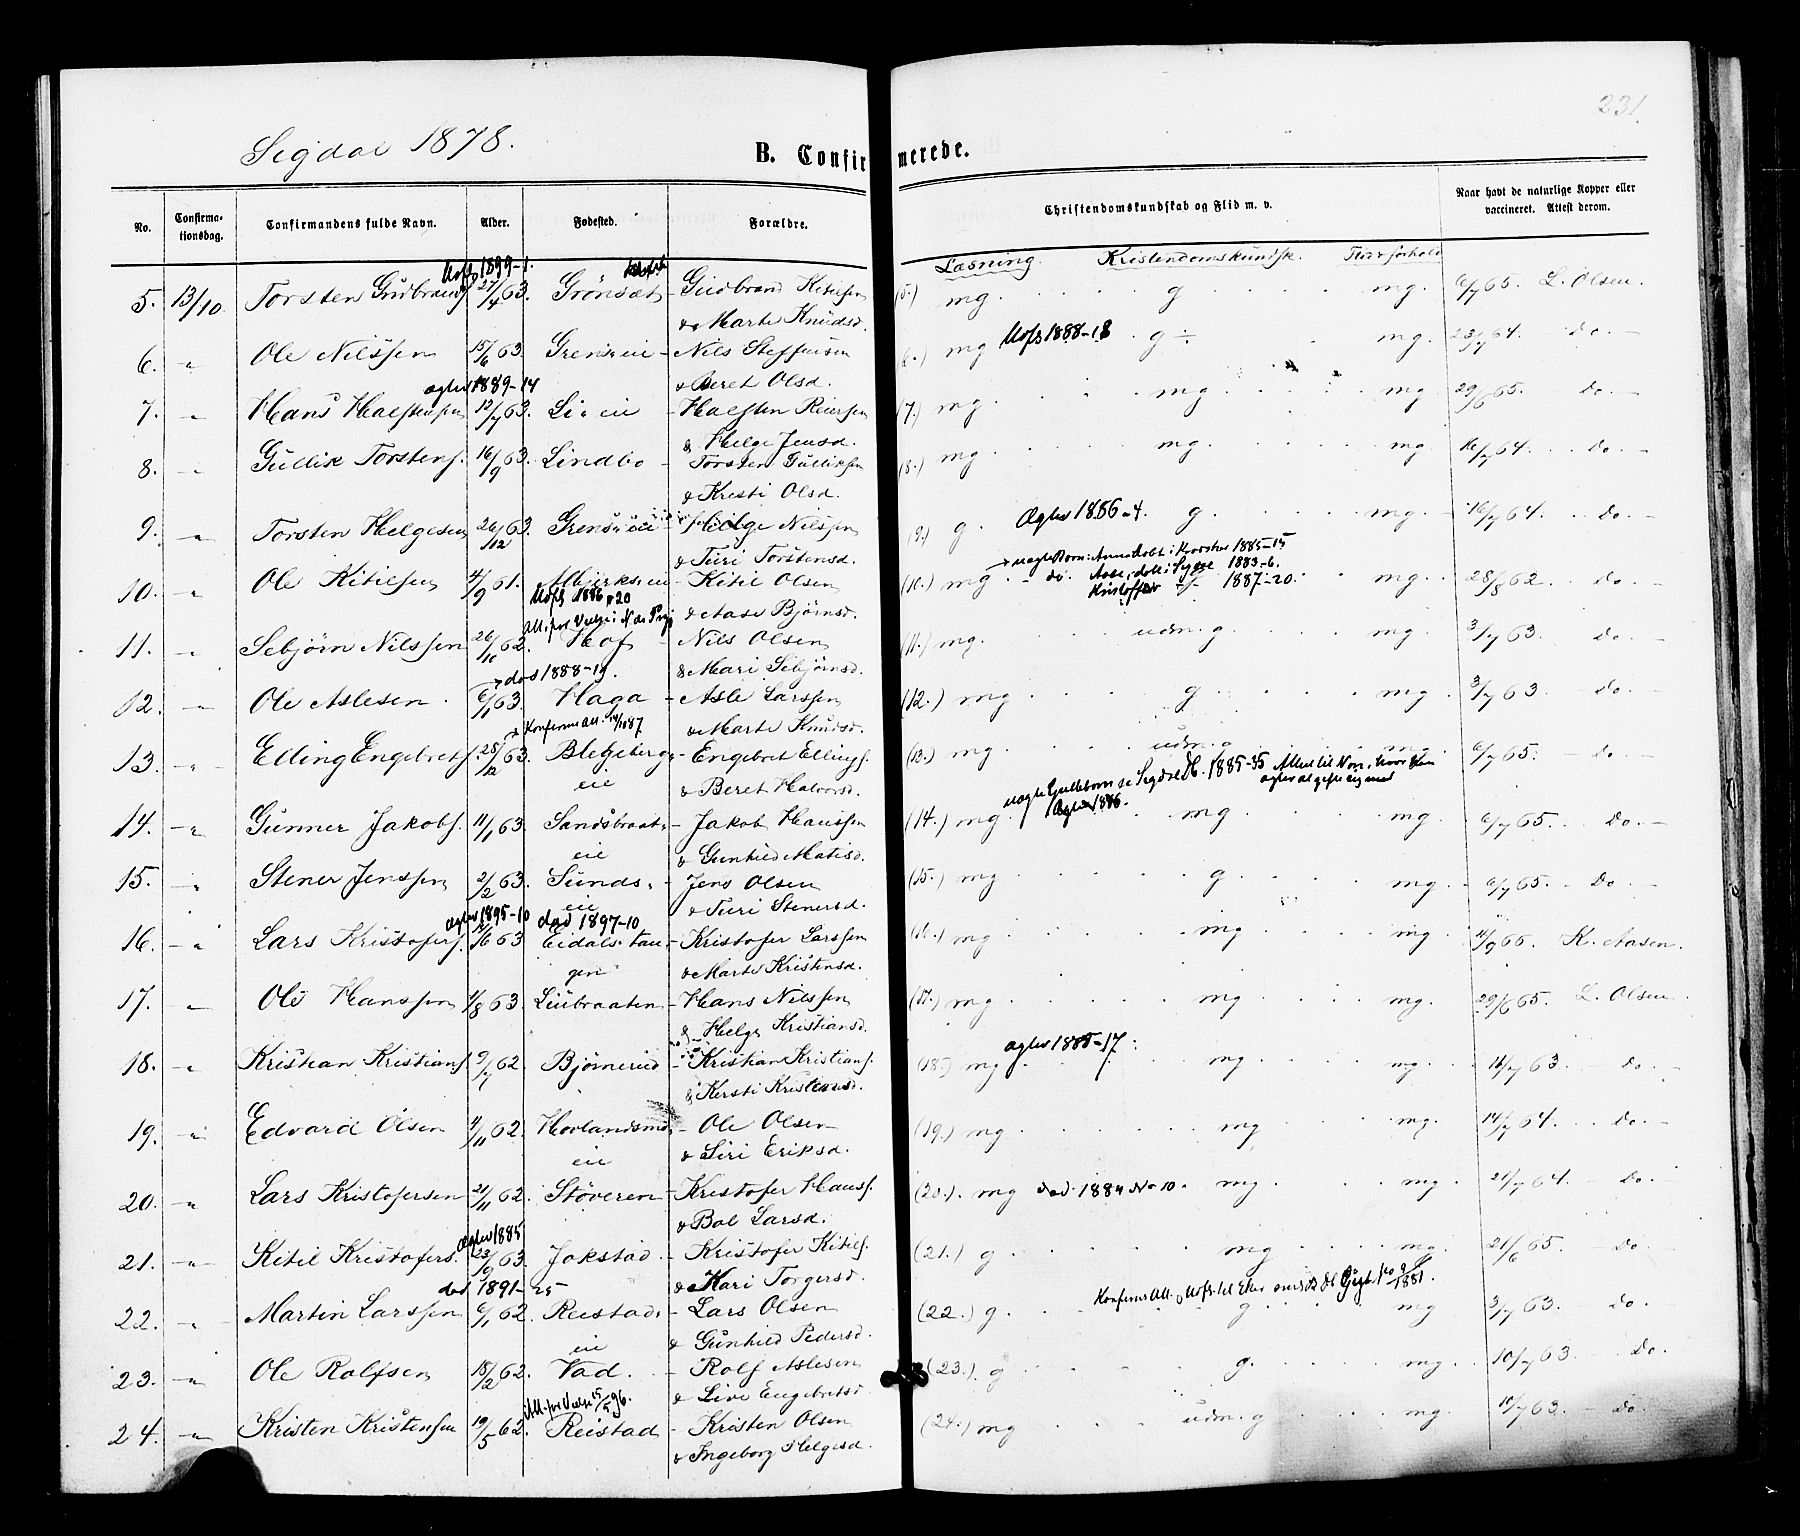 231.
Sigdal 1878.
B. Confirmerede.
No. Confirmationsdag. Confirmandens fulde Navn. Alder. Fødested. Forældre. Christendomskundskab og Flid m. v. Naar havt de naturlige Kopper eller vaccineret. Attest derom.
Læsning. Kristendomskundsk. Forhold
Uofs 1899-1.
5. 13/10 Torsten Gudbrands. 27/4 63. Grönsæt - Gudbrand Kitilsen (5.) mg g mg. 6/7 65. L. Olsen.
& Marte Knudsd.
Uofs 1888-18
6. -"- Ole Nilssen 15/6 63. Grens eie - Nils Steffensen (6.) mg g ÷ mg. 23/7 64. Do. -
& Beret Olsd.
ægtev 1889-14
7. -"- Hans Halstensen 12/7 63. Li eie - Halsten Reiersen (7.) mg. mg mg 29/6 65. Do. -
& Helge Jensd.
8. -"- Gullik Torstens. 16/9 63. Lindbo - Torsten Gulliksen (8.) mg. mg. mg. 16/7 64. Do. -
& Kresti Olsd.
Ægtev 1886-4.
9. -"- Torsten Helgesen 26/12 63. Grens eie - Helge Nilssen (9.) g. g. mg. 16/7 64. Do. -
& Turi Torstensd.
uægte Born: Anna dobt i 1885-15
10. -"- Ole Kitilsen 4/9 61. - Kitil Olsen (10.) mg do. Aase, dobt i 1883-6. mg. 28/8 62. Do. -
Kristoffer -"- 1887-20.
Uofs 1886 20
& Aase Bjørnsd.
11. -"- Sebjörn Nilssen 26/10 62. Hof - Nils Olsen (11.) mg. udm. g mg. 3/7 63. Do. -
& Mari Sebjörnsd.
dos 1888-19.
12. -"- Ole Aslesen. 6/1 63. Haga - Asle Larssen (12.) mg g mg. 3/7 63 - Do. -
& Marte Knudsd.
Konferms Att. 1887
13. -"- Elling Engebrets. 28/12 63. Blegeberg eie - Engebret Ellings. (13.) mg. udm. g mg. 6/7 65. - Do. -
& Beret Halvorsd.
Sigdal 1885-35 Attest til
Ægtev 1886.
14. -"- Gunner Jakobs. 11/1 63. Sandsbraat eie - Jakob Hanssen (14.) mg. mg mg. 6/7 65. Do. -
& Gunhild Matisd.
15. -"- Stener Jenssen 2/2 63. Sunds eie - Jens Olsen (15.) mg g. mg. 6/7 65. - Do. -
& Turi Stenersd.
ægtev 1895-10 dod 1897-10
16. -"- Lars Kristofers. 63 Eidals tangen - Kristofer Larssen (16.) mg. mg. mg. 66. K. Aasen.
& Marte Kristensd.
17. -"- Ole Hanssen 1/8 63. Liubraaten - Hans Nilssen (17.) mg mg mg. 29/6 65. L. Olsen.
& Helge Kristiansd.
ægtev 1885-17
18. -"- Kristian Kristians. 9/7 62 Bjørnerud - Kristian Kristians. (18.) mg mg mg. 16/7 63. Do. -
& Kersti Kristensd.
19. -"- Edvard Olsen 4/11 62. Hovlandsmo eie - Ole Olsen (19.) mg mg mg. 14/7 64. Do. -
& Siri Eriksd.
20. -"- Lars Kristofersen 21/11 62. Støveren - Kristofer Hanss. (20.) mg dod 1884 No 10. mg. mg. 21/7 64. Do. -
& Bol Larsd.
Ægtev 1885
21. -"- Kitil Kristofers. 23/9 63. Jokstad. - Kristofer Kitils. (21.) g mg mg. 21/6 65. - Do. -
& Kari Torgersd.
dod 1891-25
Konferms Att. & Uofs. til Eker 1881.
22. -"- Martin Larssen 6/1 62. Reistads eie - Lars Olsen (22.) g. g mg 3/7 63. Do. -
& Gunhild Pedersd.
23. -"- Ole Rolfsen 18/2 62. Vad. - Rolf Aslesen (23.) g g. mg. 10/7 63. Do. -
& Live Engebretsd.
Att. for 96.
24. -"- Kristen Kristensen 19/5 62. Reistad - Kristen Olsen (24.) mg udm. g mg. 10/7 63. - Do. -
& Ingeborg Helgesd.